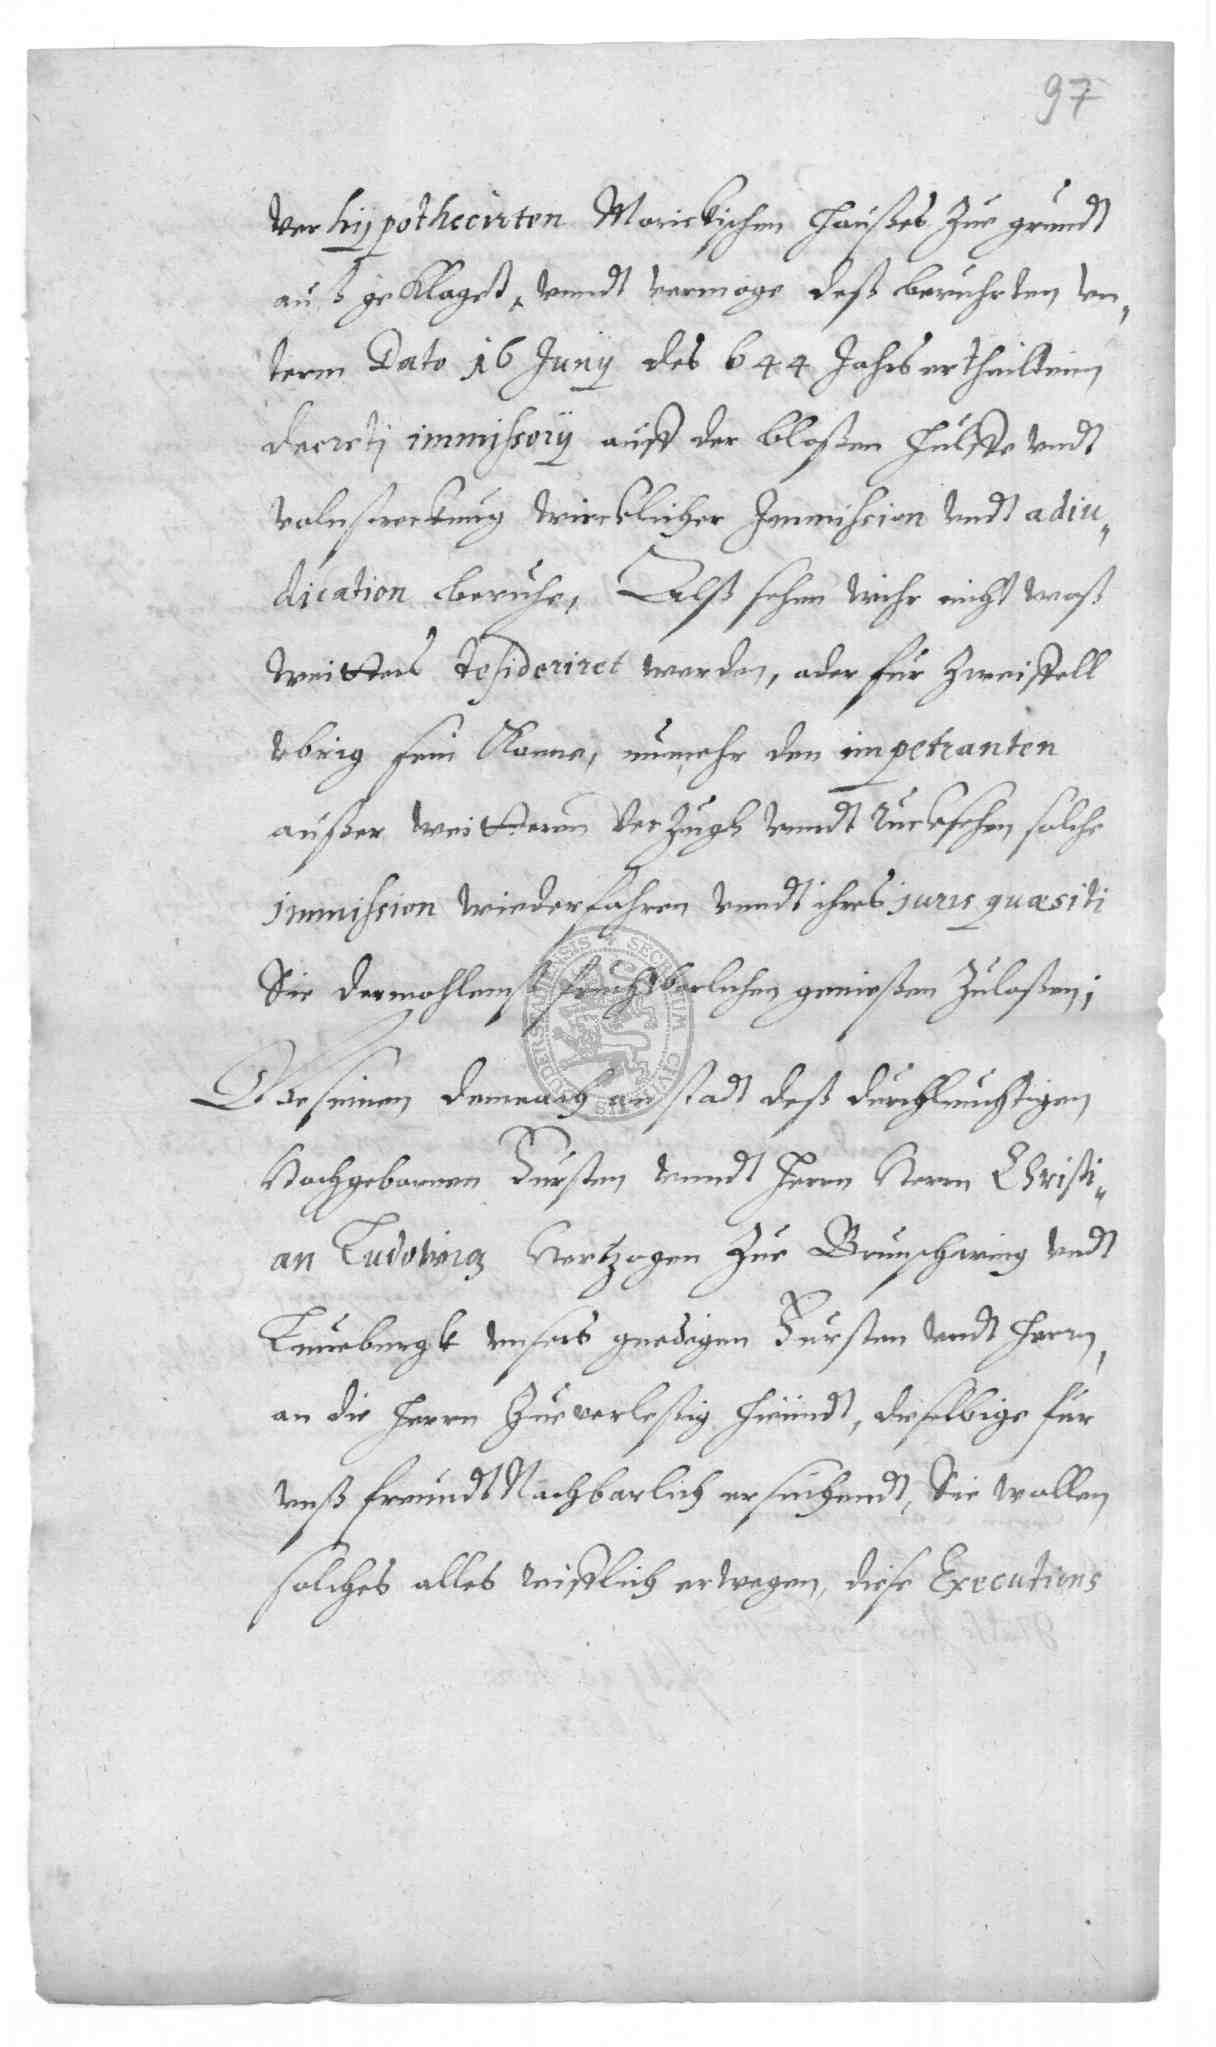 97
verhijpothecirten Marickischen Haußes Zue grundt
auß geklaget, vndt vermöge deß berührten vn„
term Dato 16 Junij des 644 Jahrs ertheilten
decreti immissorij auff der bloßen Hülffe vndt
volnstreckung wircklicher Immission vndt adiu„
dication beruhe, Alß sehen wihr nicht waß
weitters desideriret werden, oder für Zweiffell
vbrig sein Könne, nunmehr den impetranten
außer weitteren Verzugk vndt Rucksehen, solche
immission wiederfahren vndt ihres juris quæsiti
Sie dermahlenß fruchtbarlichen genießen Zulaßen;
Gesinnen demnach an stadt deß durchleuchtigen
Hochgebornen Fürsten vndt Herrn Herrn Christi„
an Ludowieg Hertzogen Zue Brunschwieg vndt
Luneburgk vnsers gnedigen Fürsten vndt Herrn,
an die Herrn Zueverleßig hiemit, dieselbige für
vnß freundt Nachbarlich ersuchendt, Sie wollen
solches alles reifflich erwegen, diese Executions
SECRETUM CIVI